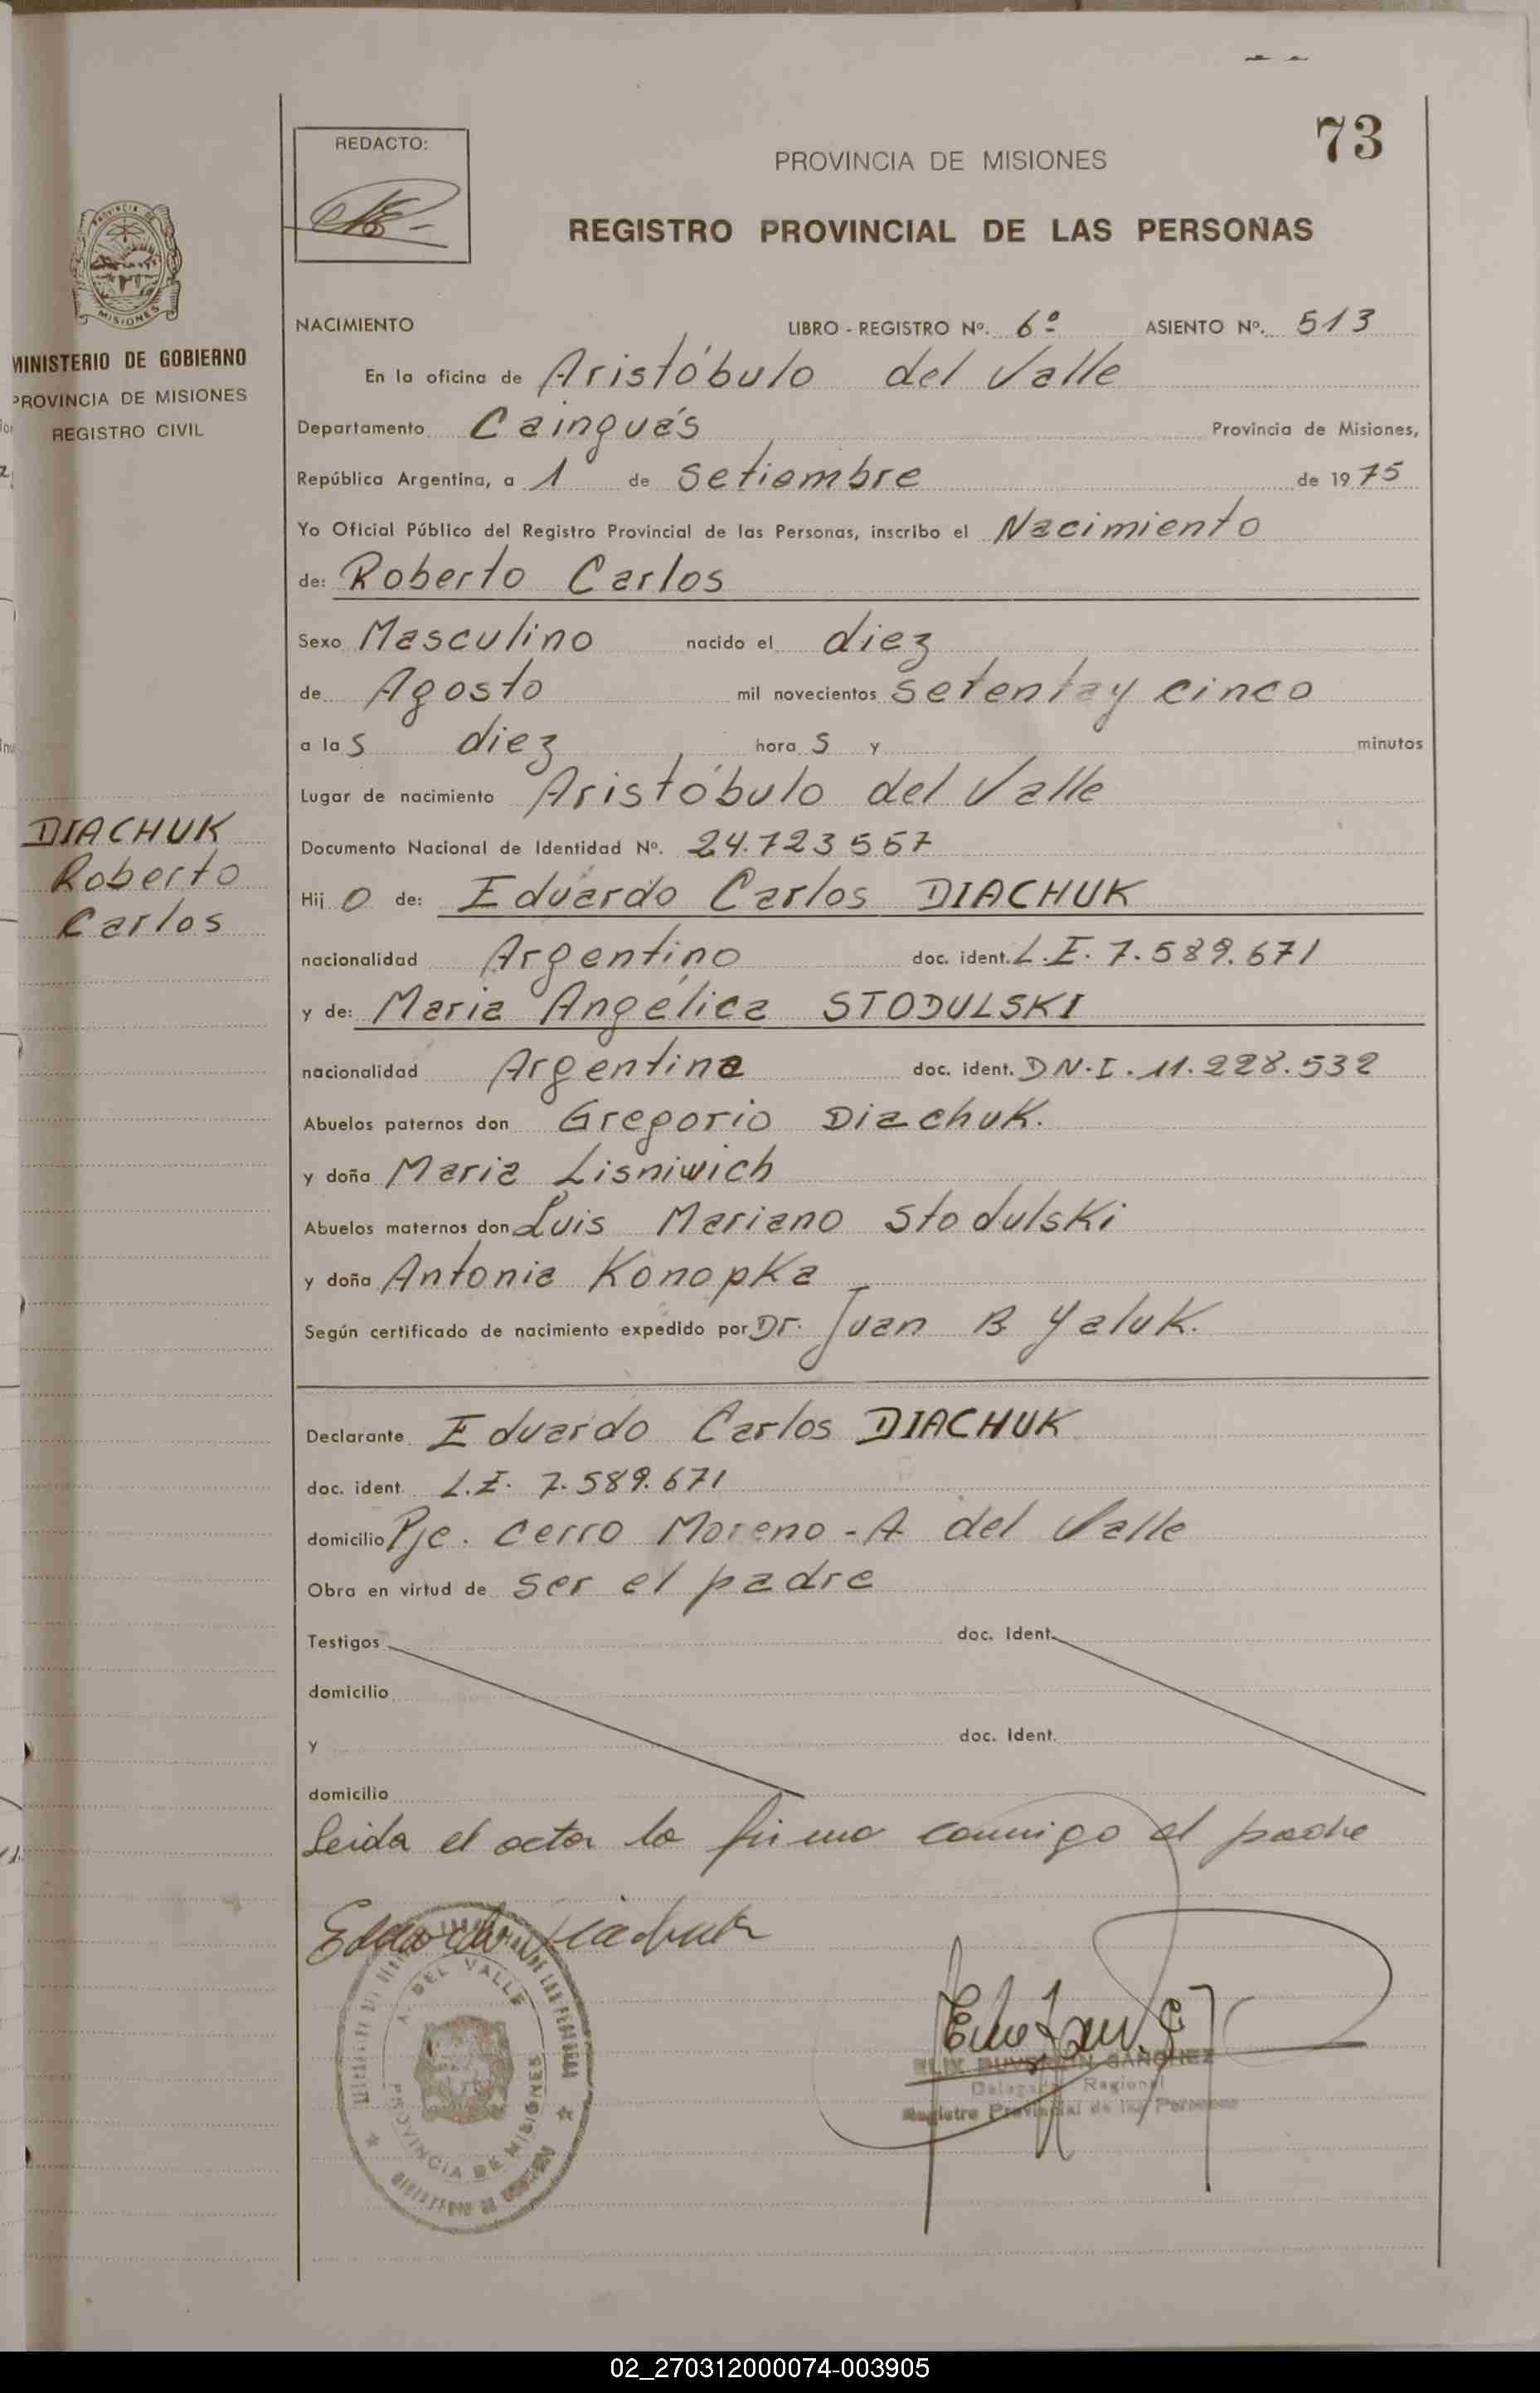 73
REDACTO:
PROVINCIA DE MISIONES
REGISTRO PROVINCIAL DE LAS PERSONAS
PROVINCIA DE
MISIONES
MINISTERIO DE GOBIERNO
PROVINCIA DE MISIONES
REGISTRO CIVIL
NACIMIENTO LIBRO - REGISTRO Nº. 6º ASIENTO Nº. 513
En la oficina de Aristóbulo del Valle
Departamento Cainguás Provincia de Misiones,
República Argentina, a 1 de Setiembre de 1975
Yo Oficial Público del Registro Provincial de las Personas, inscribo el Nacimiento
de: Roberto Carlos
Sexo Masculino nacido el diez
de Agosto mil novecientos setenta y cinco
a las diez horas y minutos
Lugar de nacimiento Aristóbulo del Valle
DIACHUK
Roberto
Carlos
Documento Nacional de Identidad Nº. 24.723567
Hijo de: Eduardo Carlos DIACHUK
nacionalidad Argentino doc. ident. L.E. 7.589.671
y de: Maria Angélica STODULSKI
nacionalidad Argentina doc. ident. D N.I. 11.228.532
Abuelos paternos don Gregorio Diachuk.
y doña Maria Lisniwich
Abuelos maternos don Luis Mariano Stodulski
y doña Antonia Konopka
Según certificado de nacimiento expedido por Dr. Juan B Yaluk.
Declarante Eduardo Carlos DIACHUK
doc. ident. L.E. 7.589.671
domicilio Pje. Cerro Moreno - A del Valle
Obra en virtud de ser el padre
Testigos doc. Ident.
domicilio
y doc. Ident.
domicilio
Leida el acta la firma conmigo el padre
Eduardo Diachuk
A. DEL VALLE
PROVINCIA DE MISIONES
SANCHEZ
Delegado Regional
Registro Provincial de las Personas
02_270312000074-003905